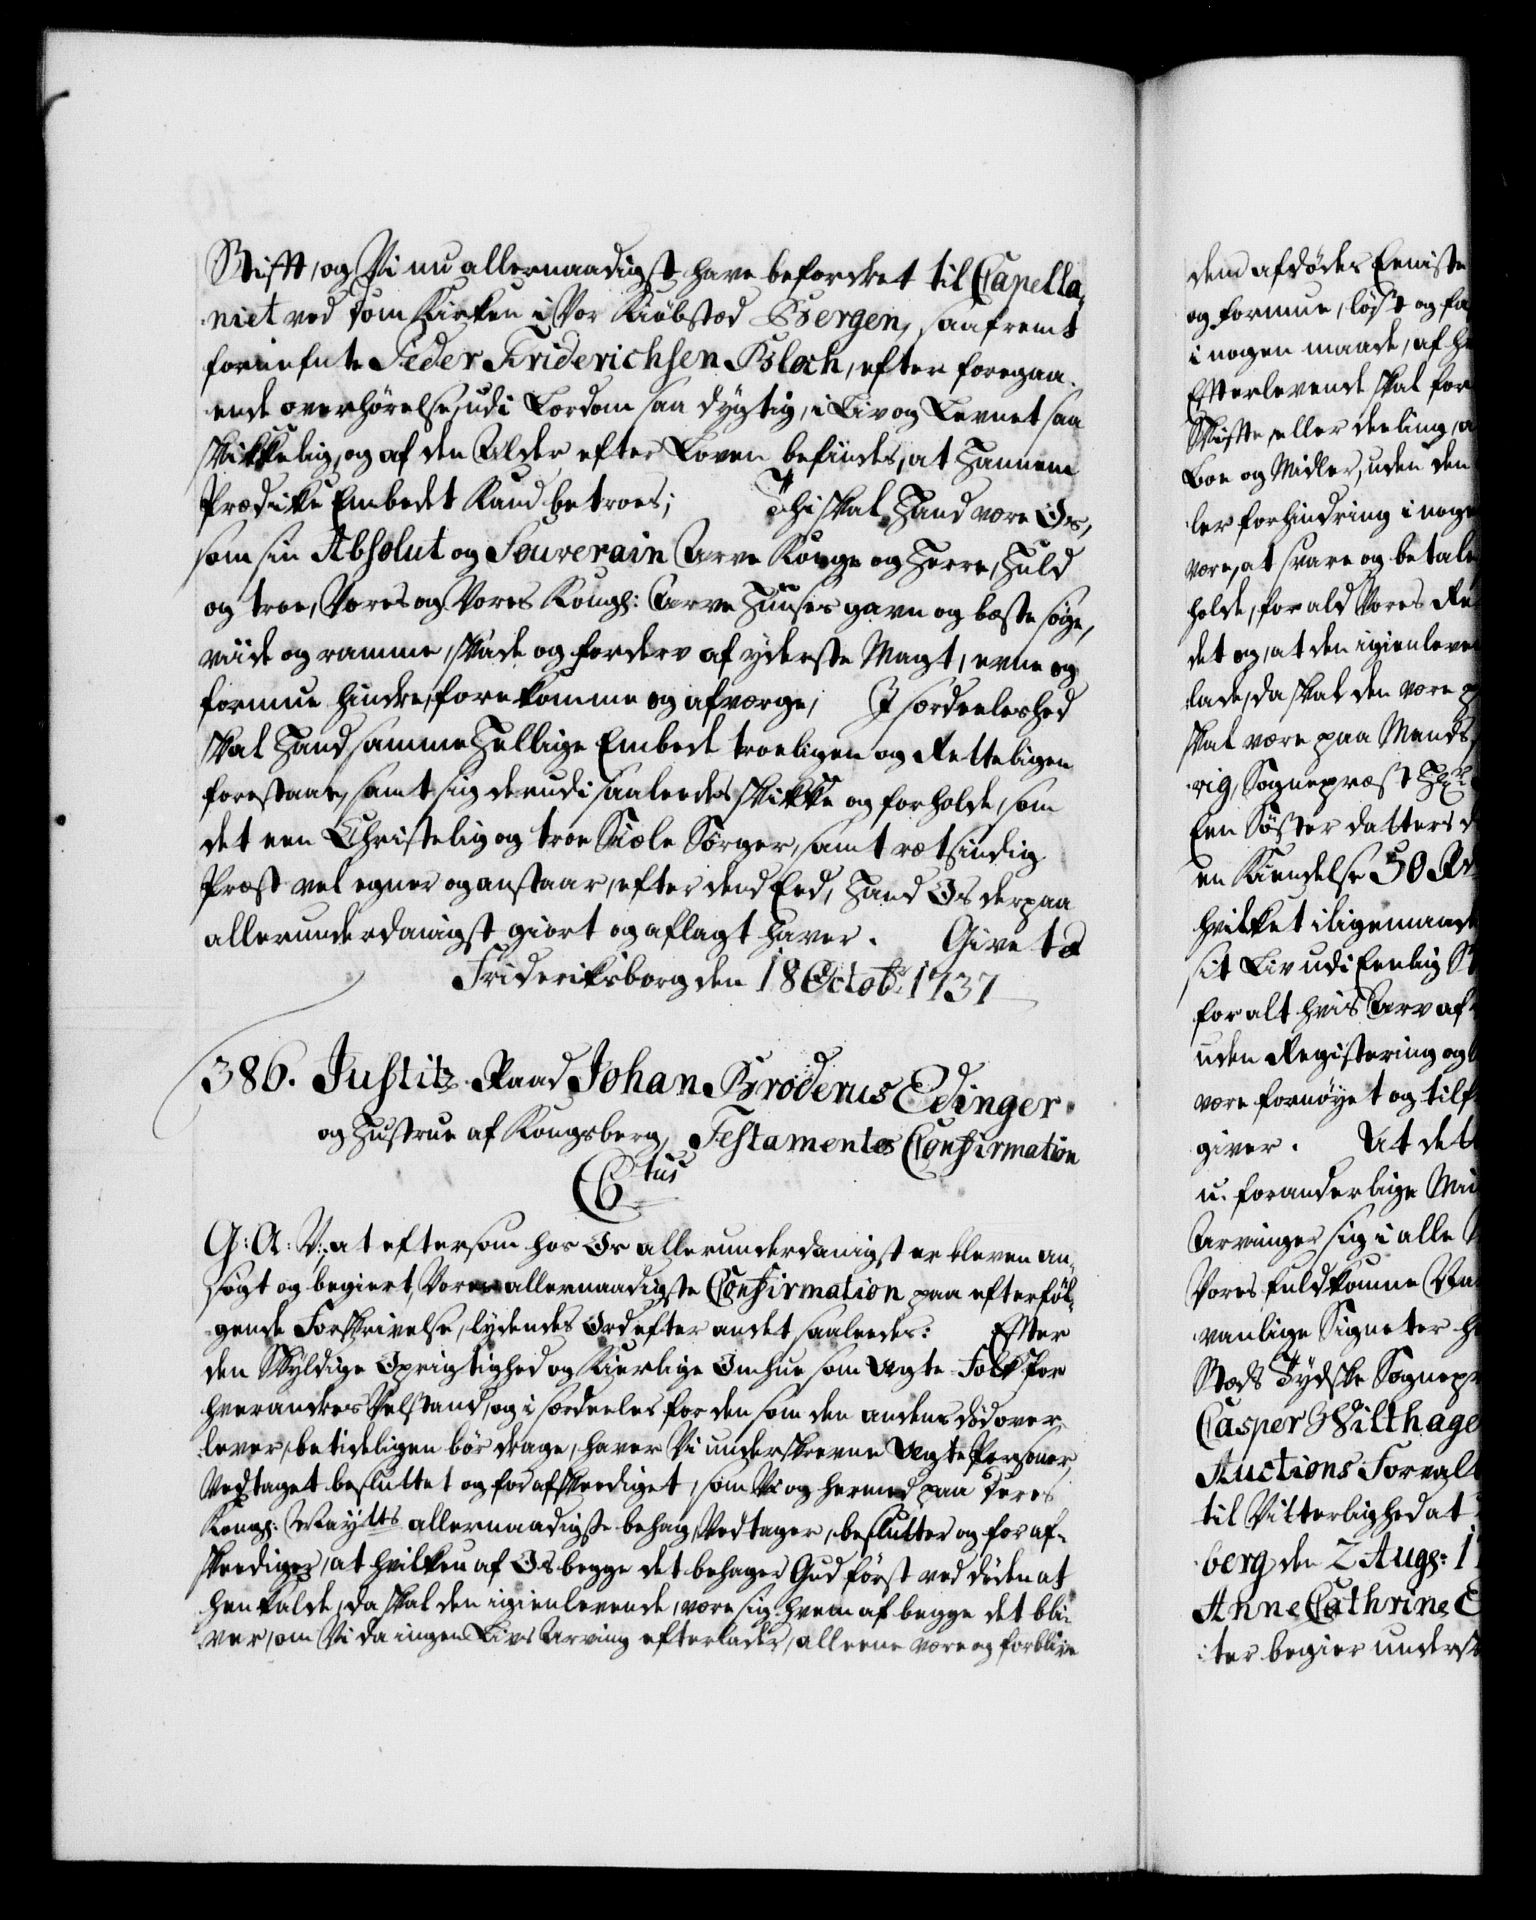 Stifft, og Vi nu allernaadigst have befordret til Capella,
niet ved Dom Kirken i Vor Kiøbstad Bergen, saafremt
forinefnte Peder Friderichsen Bloch, efter foregaa-
ende overhørelse, udi Lærdom saa dygtig, i Liv og Levnet saa
skikkelig, og af den Alder efter Loven befindes, at Hannem
Prædike Embedet Kand betroes; Thi skal Hand være Os,
som sin Absolut og Souverain Arve Konge og Herre, Huld
og troe, Vores og Vores Kongl: Arve Huuses gavn og beste søge,
viide og ramme, skade og forderv af yderste Magt, evne og
formue hindre, forekomme og afværge, I særdeeleshed
skal Hand samme Hellige Embede troeligen og Retteligen
forestaae, samt sig derudi saaledes skikke og forholde, som
det een Christelig og troe Siæle Sørger, samt rætsindig
Præst vel egner og anstaar, efter dend Eed, Hand Os derpaa
allerunderdanigst giort og aflagt haver. Givet &c
Frideriksborg den 18 Octobr: 1737
386. Justitz Raad Johan Broderus Edinger
og Hustrue af Kongsberg, Testamentes Confirmation
C6tus
G: A: V:, at eftersom hos Os allerunderdanigst er bleven an-
søgt og begiert Vores allernaadigste Confirmation paa efterføl-
gende Forskrivelse, lydendes Ord efter andet saaledes: Efter
den Skyldige Oprigtighed og Kierlige Omhue som Ægte Folk for
hverandres Velstand, og i særdeeles for den som den andens død over-
lever, betideligen bør drage, haver Vi underskrevne Ægte Personer,
Vedtaget besluttet og forafskeediget, som Vi og hermed paa Deres
Kongl: Maytts allernaadigste behag, Vedtager, beslutter og foraf-
skeediger, at hvilken af Os begge det behager Gud først ved døden at
henkalde, da skal den igienlevende, være sig hvem af begge det bli-
ver, om Vi da ingen Livs Arving efterlader, alleene være og forblive
dend afdødes Eeniste
og formue, løst og fa
i nogen maade, af h
Efterlevende skal for
Skifte eller deeling, a
Boe og Midler, uden den
ler forhindring i noge
være, at svare og betale
holde, for ald Vores Re
det og, at den igienleve
lade, da skal den være p
skal være paa Mands,
rig, Sognepræst Hr.
Een Søster datters d
en Kiendelse 50 Rd
hvilket i ligemaade
sit Liv udi Eenlig St
for alt hvis Arv af
uden Registering og
være fornøyet og tilf
giver. At det
u-foranderlige Mai
Arvinger sig i alle
Vores fuldkomne Va
vanlige Signeter h
Stæds Tydske Sognepr
Casper Wilthage
Auctions Forvalt
til Vitterlighed at
berg den 2 Aug: 1
Anne Cathrine E
ter begier undersk